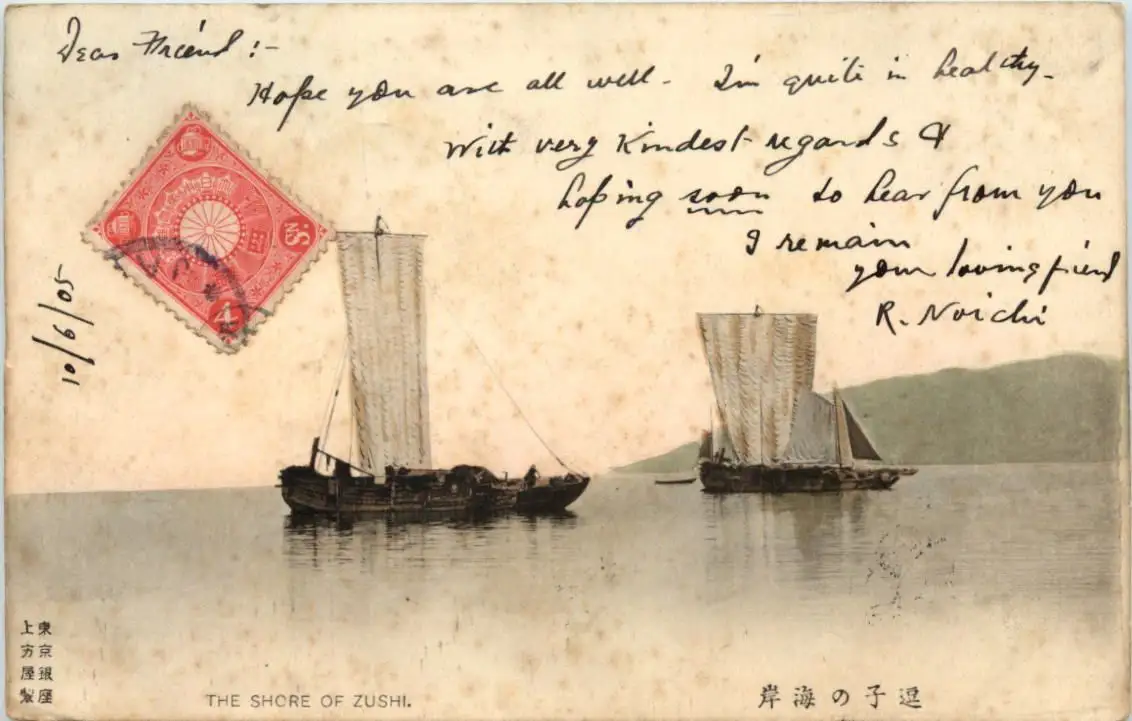 Dear Friend :-
Hope you are all well. I'm quite in healthy.
With very kindest regards &
hoping soon to hear from you
I remain
your loving friend
R. Noichi
10/6/05
4
Sn.
THE SHORE OF ZUSHI.
逗子の海岸
東京銀座
上方屋製